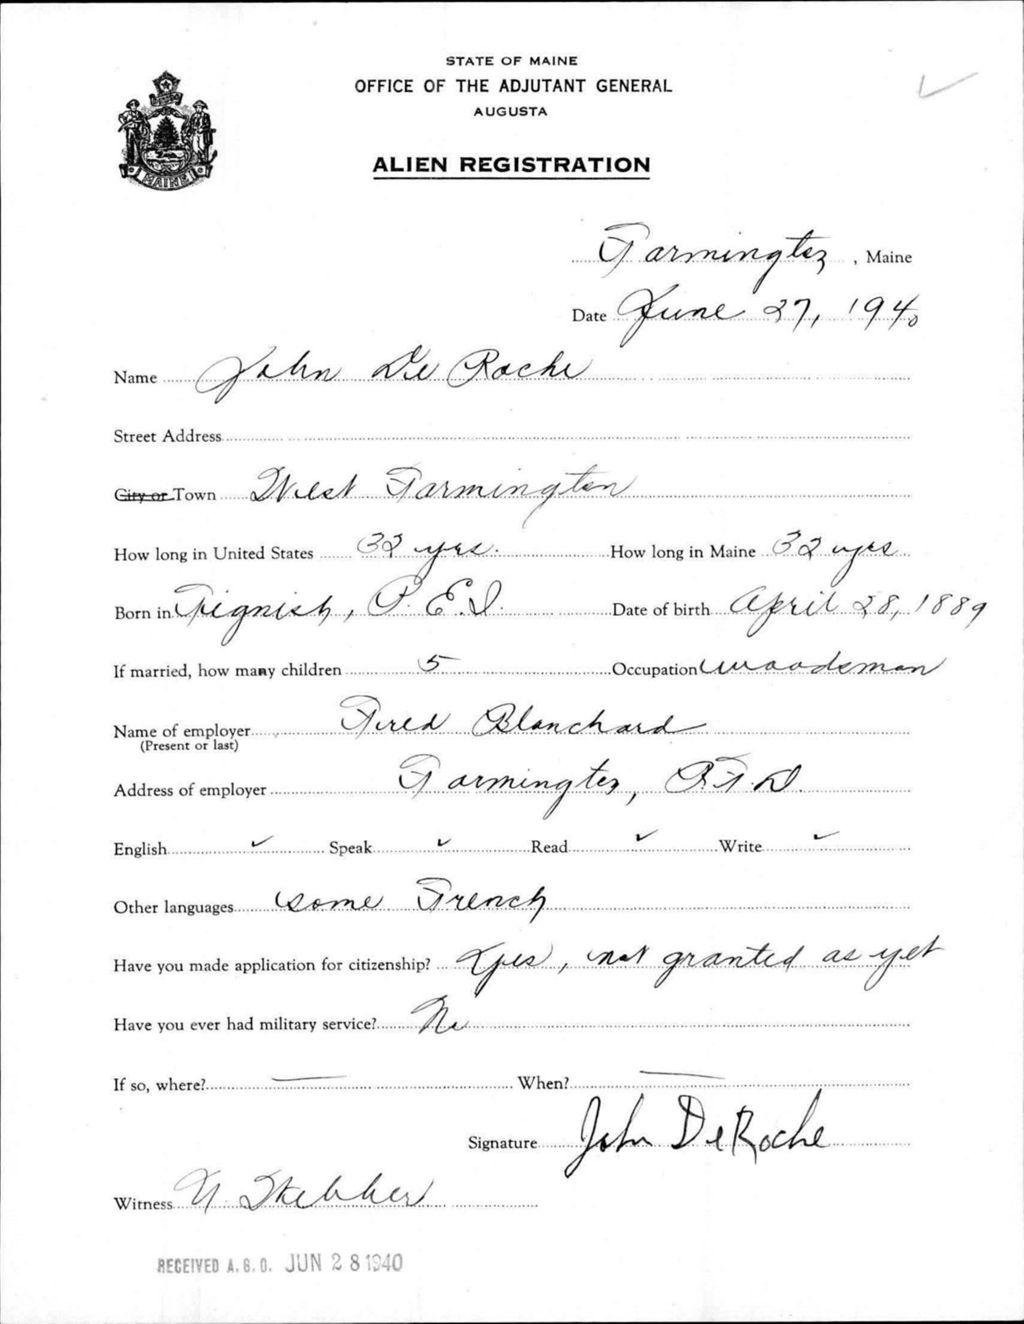 STATE OF MAINE
OFFICE OF THE ADJUTANT GENERAL
AUGUSTA
MAINE
ALIEN REGISTRATION
Farmington, Maine
Date June 27, 1940
Name John De Roche
Street Address
City or Town West Farmington
How long in United States 32 yrs. How long in Maine 32 yrs
Born in Tignish, P. E. I. Date of birth April 28, 1889
If married, how many children 5 Occupation woodsman
Name of employer Fred Blanchard
(Present or last)
Address of employer Farmington, R.F.D.
English ✓ Speak ✓ Read ✓ Write ✓
Other languages some French
Have you made application for citizenship? Yes, not granted as yet
Have you ever had military service? No
If so, where? — When? —
Signature John DeRoche
Witness
RECEIVED A. G. O. JUN 28 1940